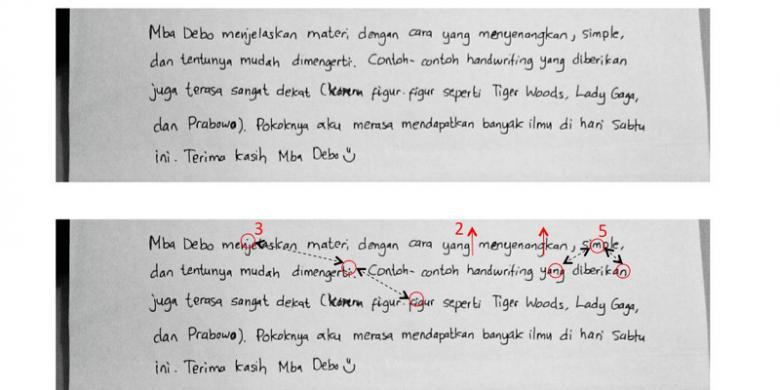 Mba Debo menjelaskan materi, dengan cara yang menyenangkan, simple,
dan tentunya mudah dimengerti. Contoh-contoh handwriting yang diberikan
juga terasa sangat dekat (karena figur-figur seperti Tiger Woods, Lady Gaga,
dan Prabowo). Pokoknya aku merasa mendapatkan banyak ilmu di hari Sabtu
ini. Terima kasih Mba Debo
3 2 5
Mba Debo menjelaskan materi, dengan cara yang menyenangkan, simple,
dan tentunya mudah dimengerti. Contoh-contoh handwriting yang diberikan
juga terasa sangat dekat (karena figur-figur seperti Tiger Woods, Lady Gaga,
dan Prabowo). Pokoknya aku merasa mendapatkan banyak ilmu di hari Sabtu
ini. Terima kasih Mba Debo